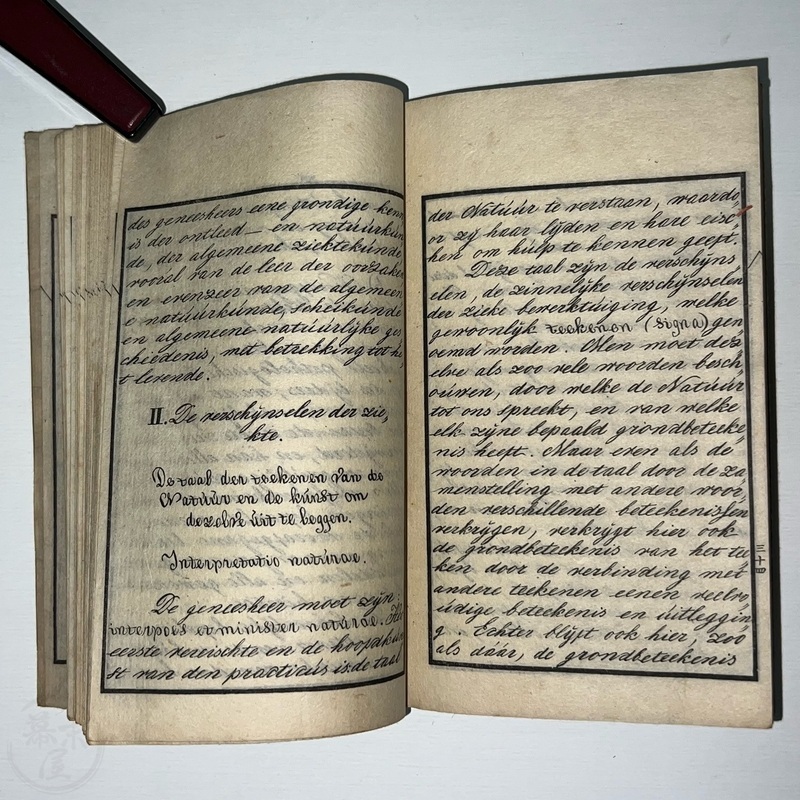 des geneesheers eene grondige kenn
is der ontleed — en natúúrkún
de, der algemeene ziektekúnde
vooral van de leer der oorzaken
en evenzeer van de algemeen
e natúúrkúnde, scheikúnde
en algemeene natúúrlijke ges
chiedenis, met betrekking tot he
t levende.
II. De verschijnselen der zie„
kte.
De taal der teekenen van de
Natúúr en de kúnst om
dezelve úit te leggen.
Interpretatio natúrae.
De geneesheer moet zijn:
interpres et minister natúrae.
eerste vereischte en de hoofdkún
st van den practicús is: de taal
der Natúúr te verstaan, waardo„
or zij haar lijden en hare eisc„
hen om húlp te kennen geeft.
Deze taal zijn de verschijns
elen, de zinnelijke verschijnselen
der zieke bewerktúiging, welke
gewoonlijk teekenen (signa) gen
oemd worden. Men moet dez„
elve als zoo vele woorden besch„
oúwen, door welke de Natúúr
tot ons spreekt, en van welke
elk zijne bepaald grondbeteeke„
nis heeft. Maar even als de
woorden in de taal door de za„
menstelling met andere woor„
den verschillende beteekenissen
verkrijgen, verkrijgt hier ook
de grondbeteekenis van het tee
ken door de verbinding met
andere teekenen eenen veelvo„
údige beteekenis en úitleggin„
g. Echter blijft ook hier, zoo
als dáár, de grondbeteekenis
三十四